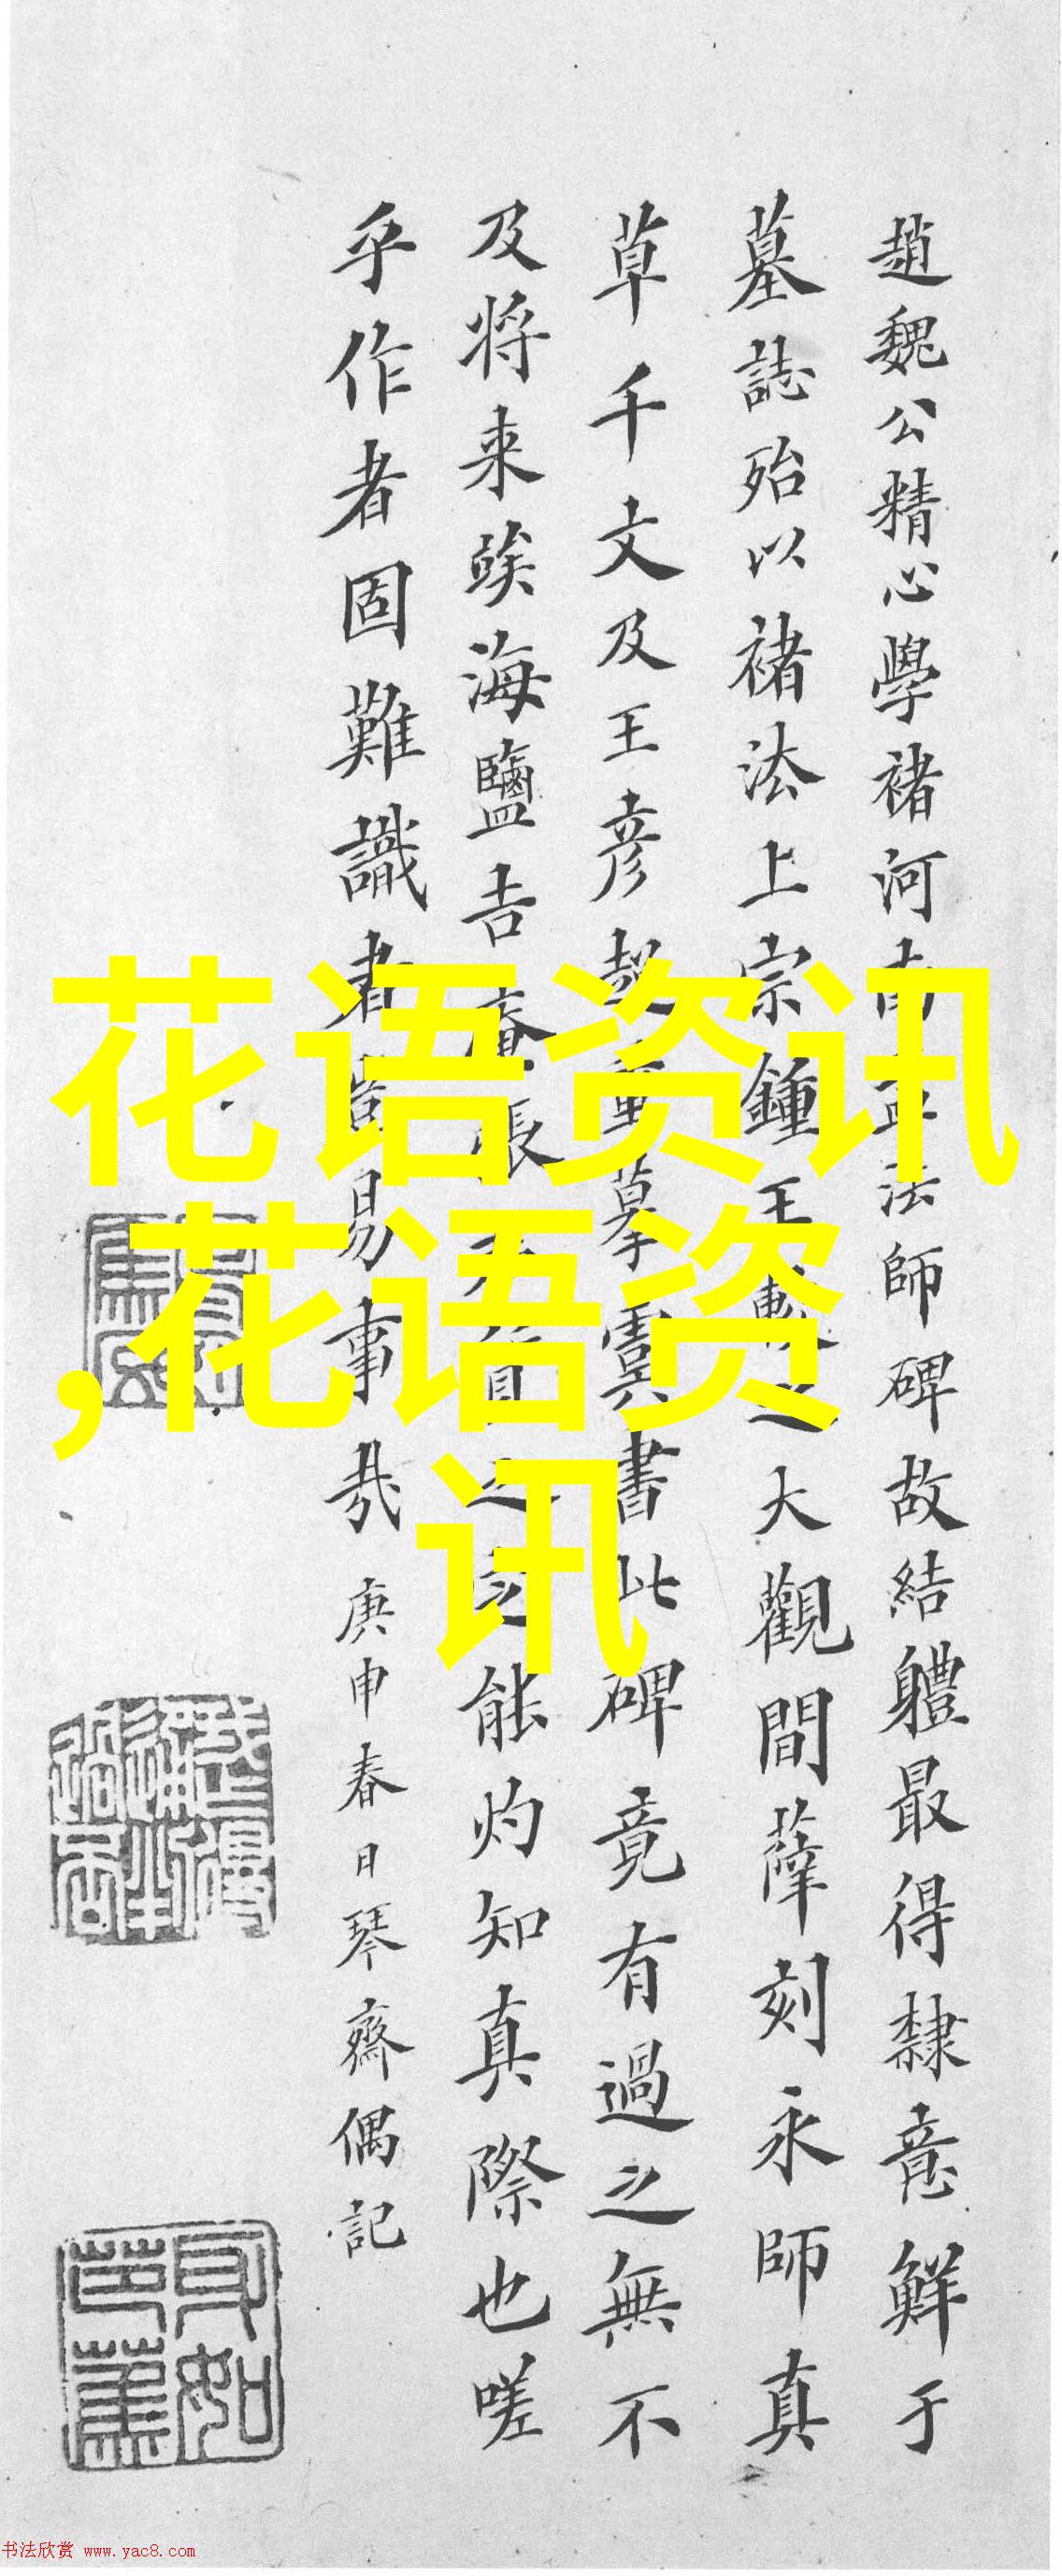 趙魏公精心學褚河南孟法師碑故結軆最得隸意鮮于
墓誌殆以褚法上宗鍾王之大觀間薛刻永師真
草千文及王彦超重摹虞書此碑竟有過之無不
及将来竢海鹽吉張之定能灼知真際也嗟
乎作者固難識者豈易事哉庚申春日琴齋偶記
花语资讯
,花语资
讯
书法欣赏 www.yac8.com